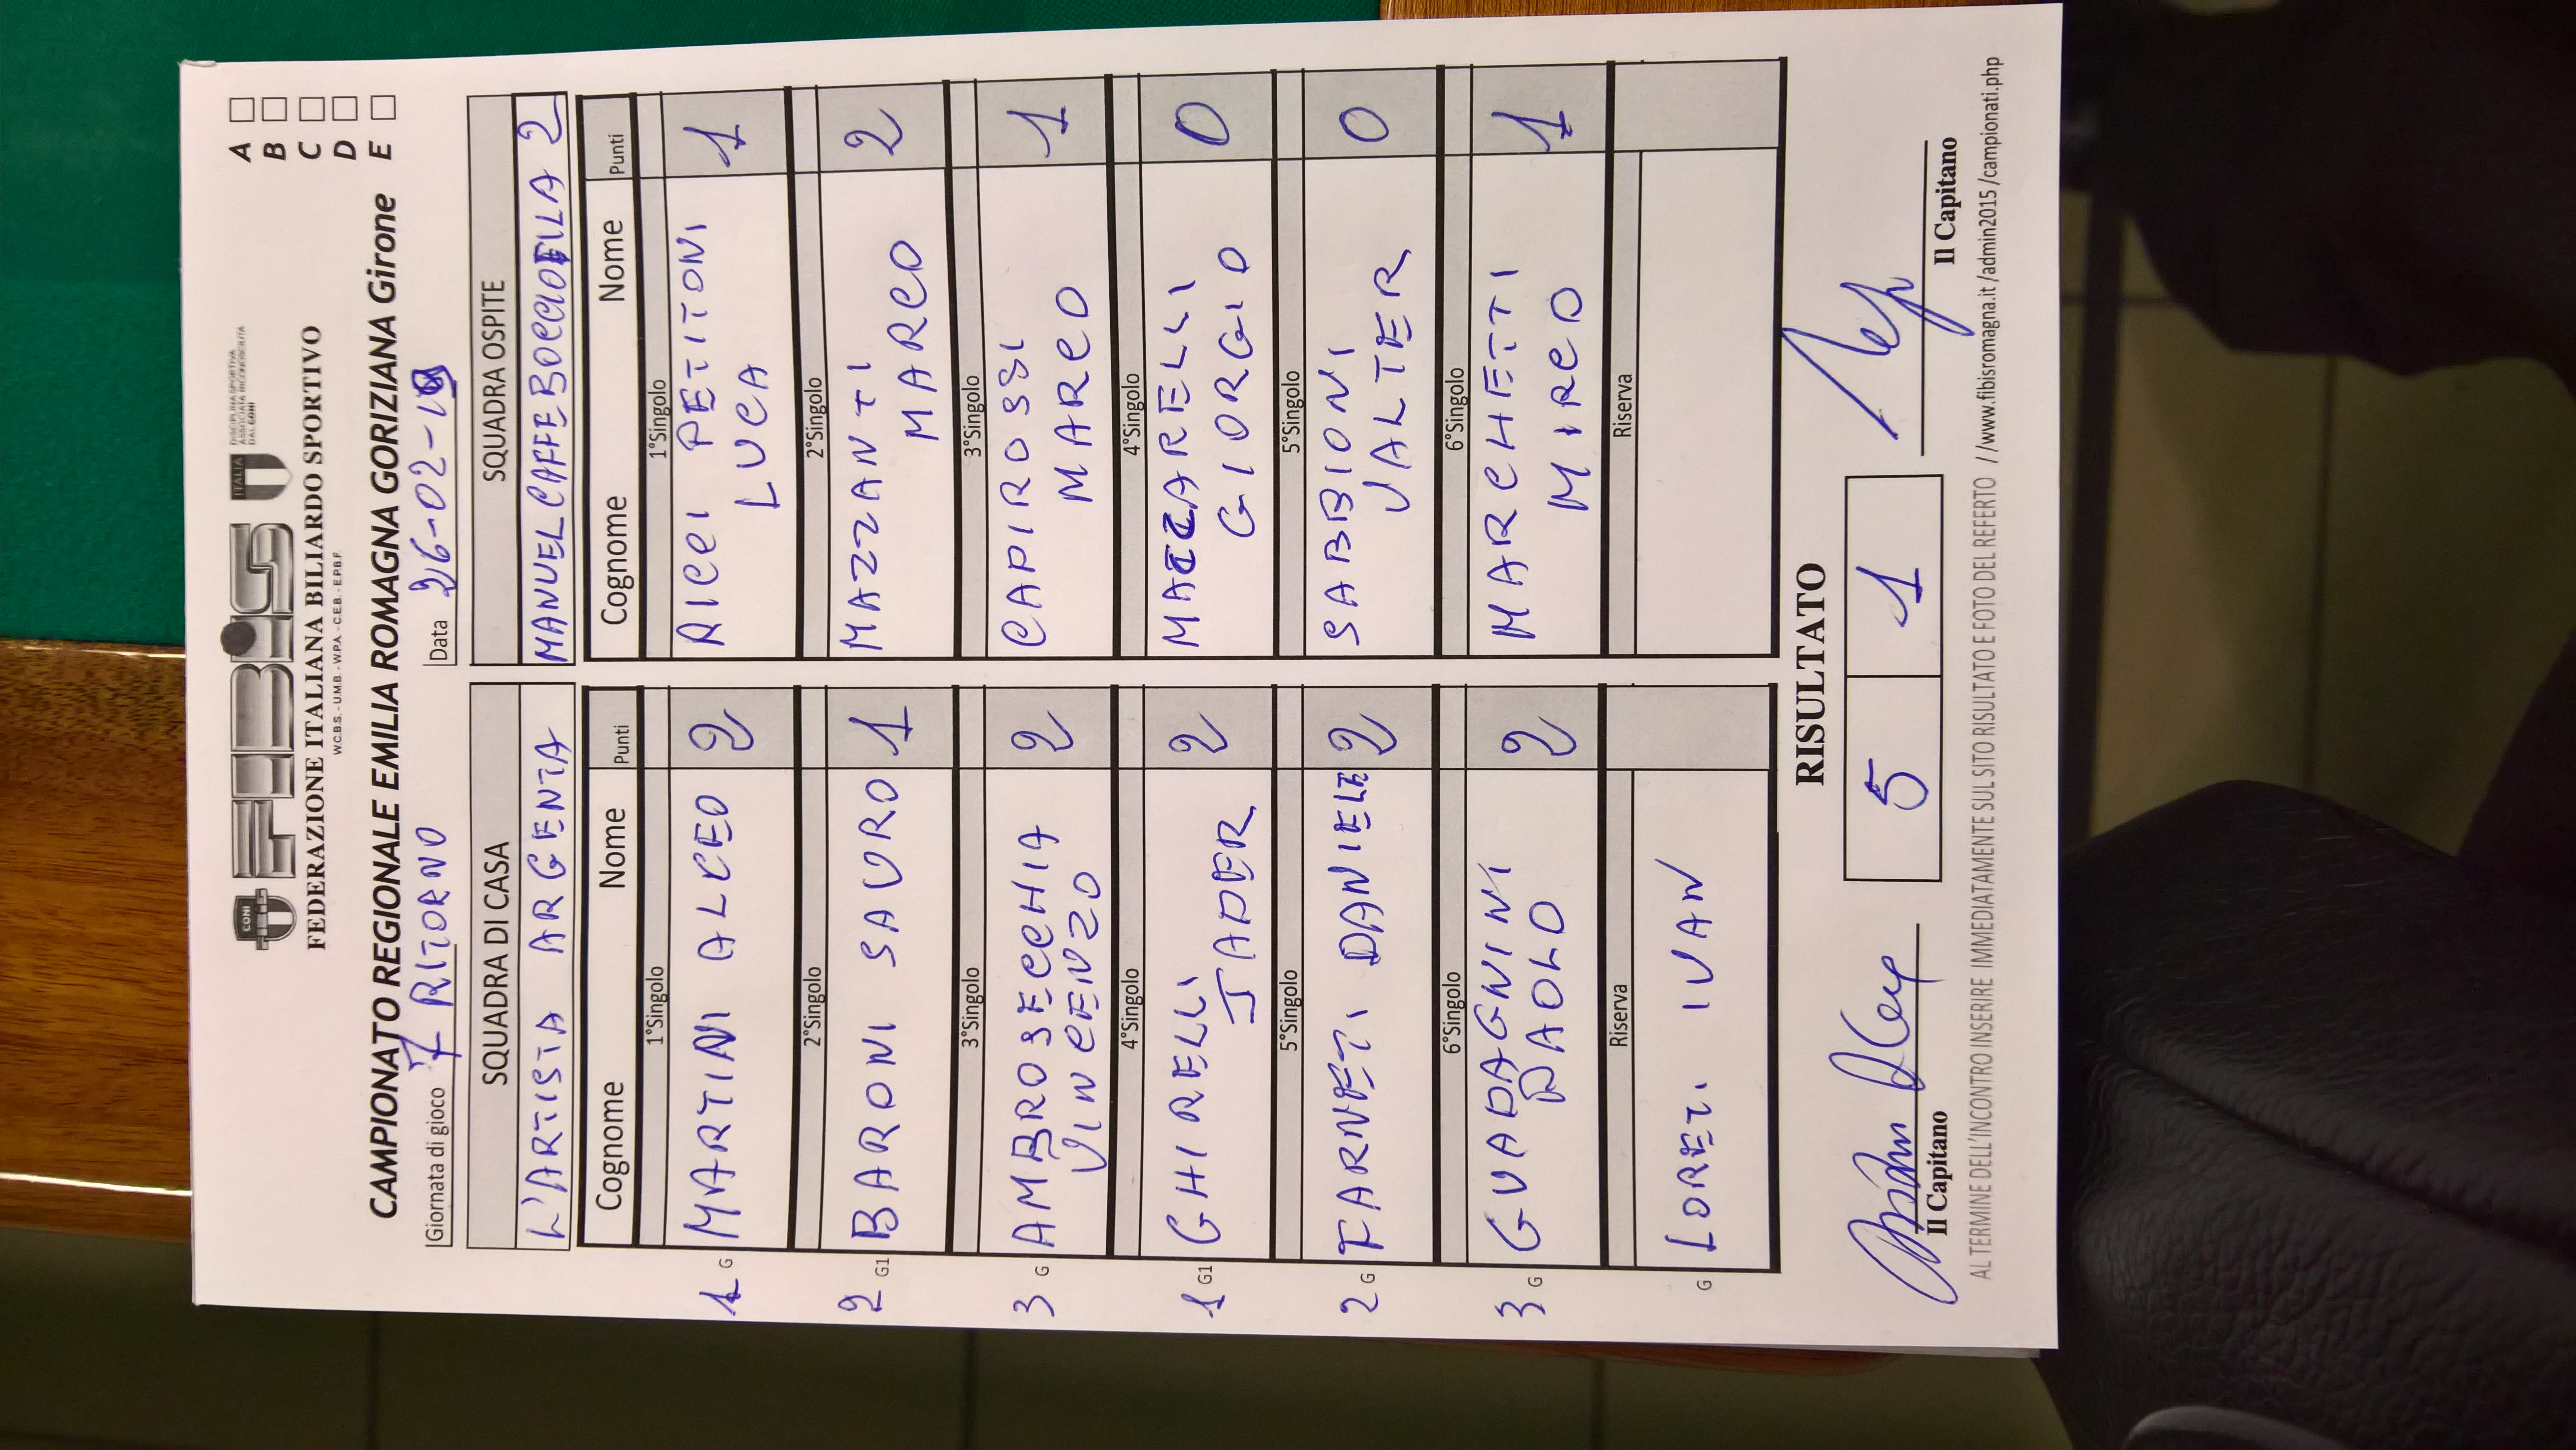 CONI
FIBiS
ITALIA
DISCIPLINA SPORTIVA
ASSOCIATA RICONOSCIUTA
DAL CONI
FEDERAZIONE ITALIANA BILIARDO SPORTIVO
W.C.B.S. - U.M.B. - W.P.A. - C.E.B. - E.P.B.F.
CAMPIONATO REGIONALE EMILIA ROMAGNA GORIZIANA Girone
A
B
C
D
E
Giornata di gioco 7 RITORNO Data 26-02-
SQUADRA DI CASA SQUADRA OSPITE
L'ARTISTA ARGENTA MANUEL CAFFE BOCCIOFILA 2
Cognome Nome Punti Cognome Nome Punti
1°Singolo 1°Singolo
1 G MARTINI ALCEO 2 RICCI PETITONI 1
LUCA
2°Singolo 2°Singolo
2 G1 BARONI SAURO 1 MAZZANTI 2
MARCO
3°Singolo 3°Singolo
3 G AMBROSECCHIA 2 CAPIROSSI 1
VINCENZO MARCO
4°Singolo 4°Singolo
1 G1 GHIRELLI 2 MACCARELLI 0
JADER GIORGIO
5°Singolo 5°Singolo
2 G FARNETI DANIELE 2 SABBIONI 0
VALTER
6°Singolo 6°Singolo
3 G GUADAGNINI 2 MARCHETTI 1
PAOLO MIRCO
Riserva Riserva
G LORETI IVAN
RISULTATO
5 1
Il Capitano Il Capitano
AL TERMINE DELL'INCONTRO INSERIRE IMMEDIATAMENTE SUL SITO RISULTATO E FOTO DEL REFERTO //www.fibisromagna.it/admin2015/campionati.php